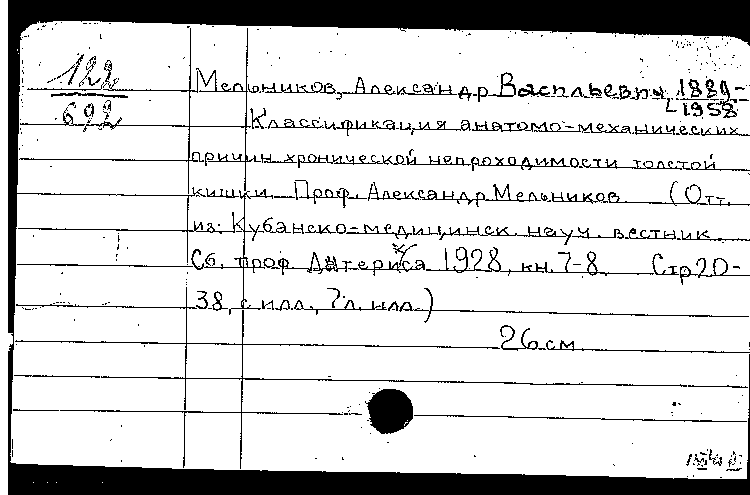 122
692
Мельников, Александр Васильевич, 1889-
1958
Классификация анатомо-механических
причин хронической непроходимости толстой
кишки. Проф. Александр Мельников. (Отт.
из: Кубанско-медицинск. науч. вестник.
Сб. проф. 1928, кн. 7-8. Стр 20-
38, с илл., 7 л. илл.)
26 см.